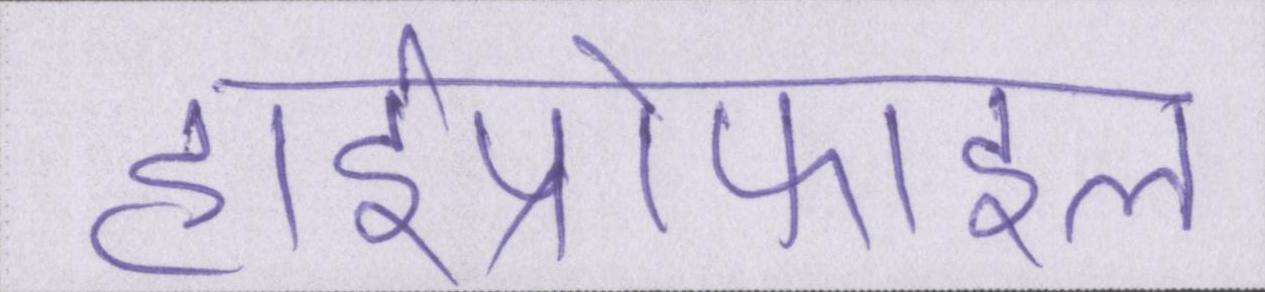 हाईप्रोफाइल